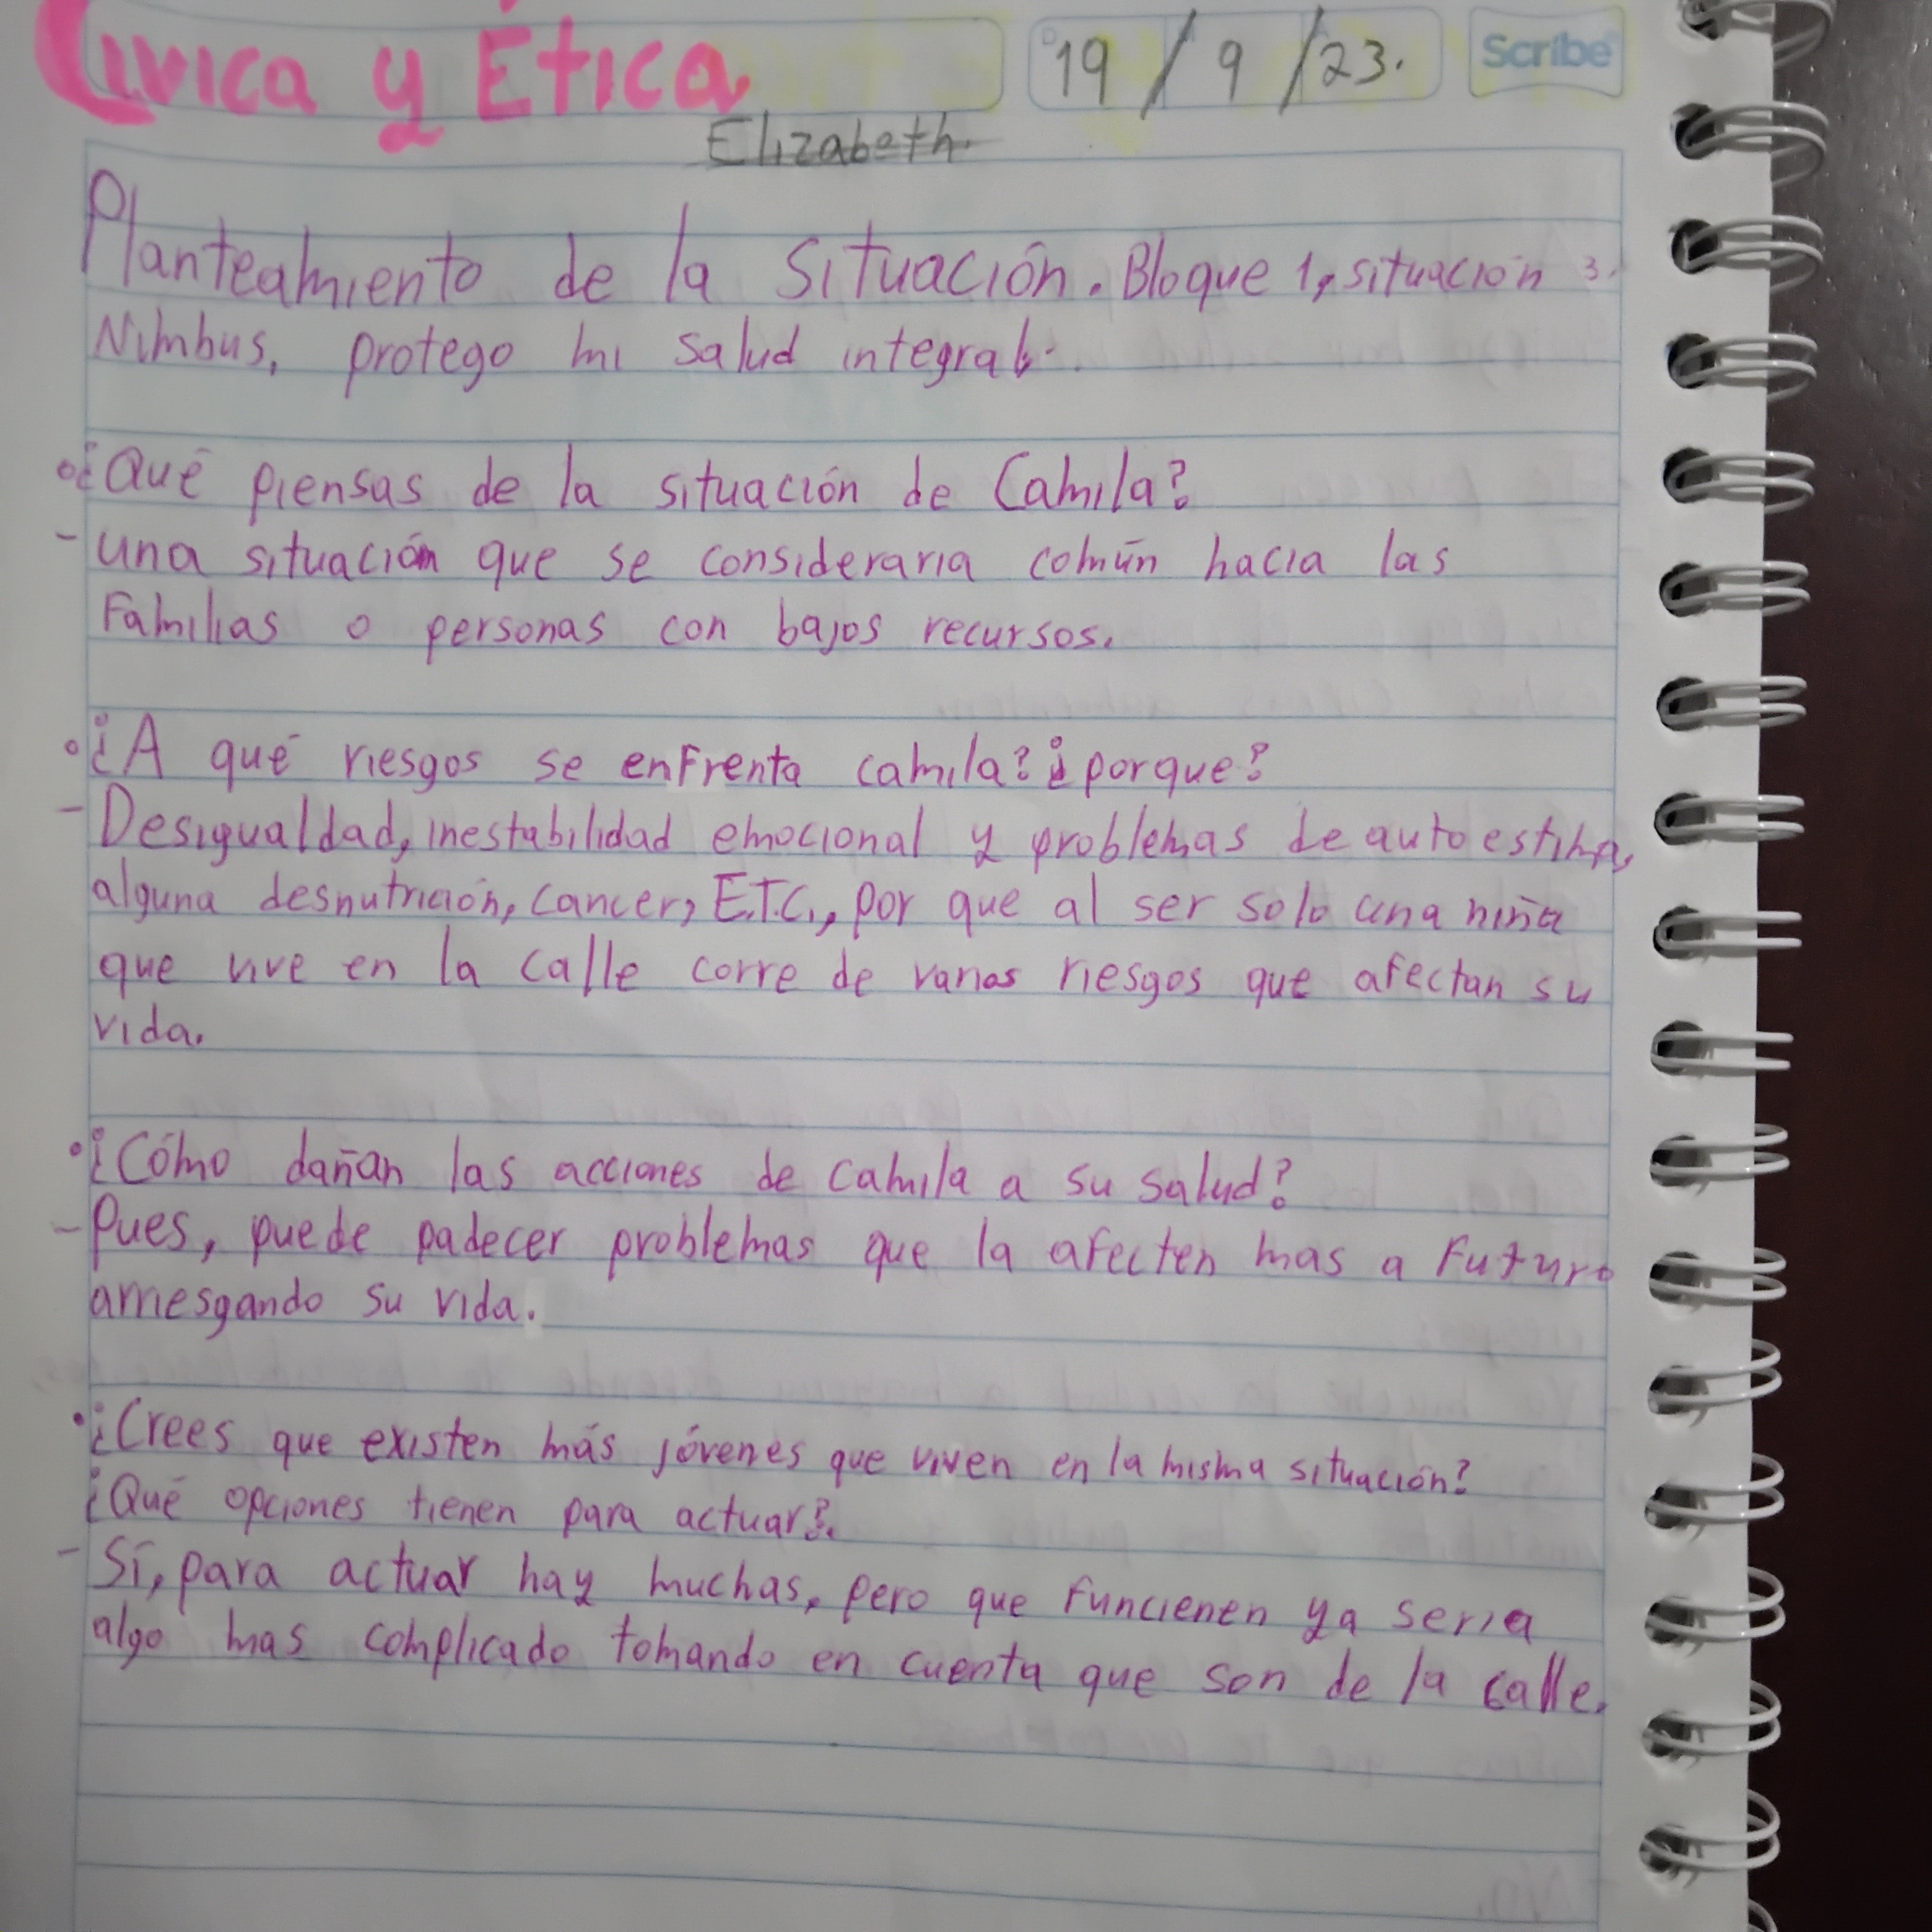 Civica y Ética
19 / 9 / 23.
Scribe
Elizabeth.
Planteamiento de la Situación. Bloque 1, situación 3.
Nimbus, protego mi salud integral.
¿Qué piensas de la situación de Camila?
- una situación que se consideraria común hacia las
Familias o personas con bajos recursos.
¿A qué riesgos se enfrenta camila? ¿porque?
- Desigualdad, inestabilidad emocional y problemas de autoestima,
alguna desnutrición, cancer, E.T.C., por que al ser solo una niña
que vive en la calle corre de varios riesgos que afectan su
vida.
¿Cómo dañan las acciones de camila a su salud?
- Pues, puede padecer problemas que la afecten mas a Futuro
arriesgando su vida.
¿Crees que existen más jóvenes que viven en la misma situación?
¿Qué opciones tienen para actuar?.
- Sí, para actuar hay muchas, pero que funcienen ya seria
algo mas complicado tomando en cuenta que son de la calle.